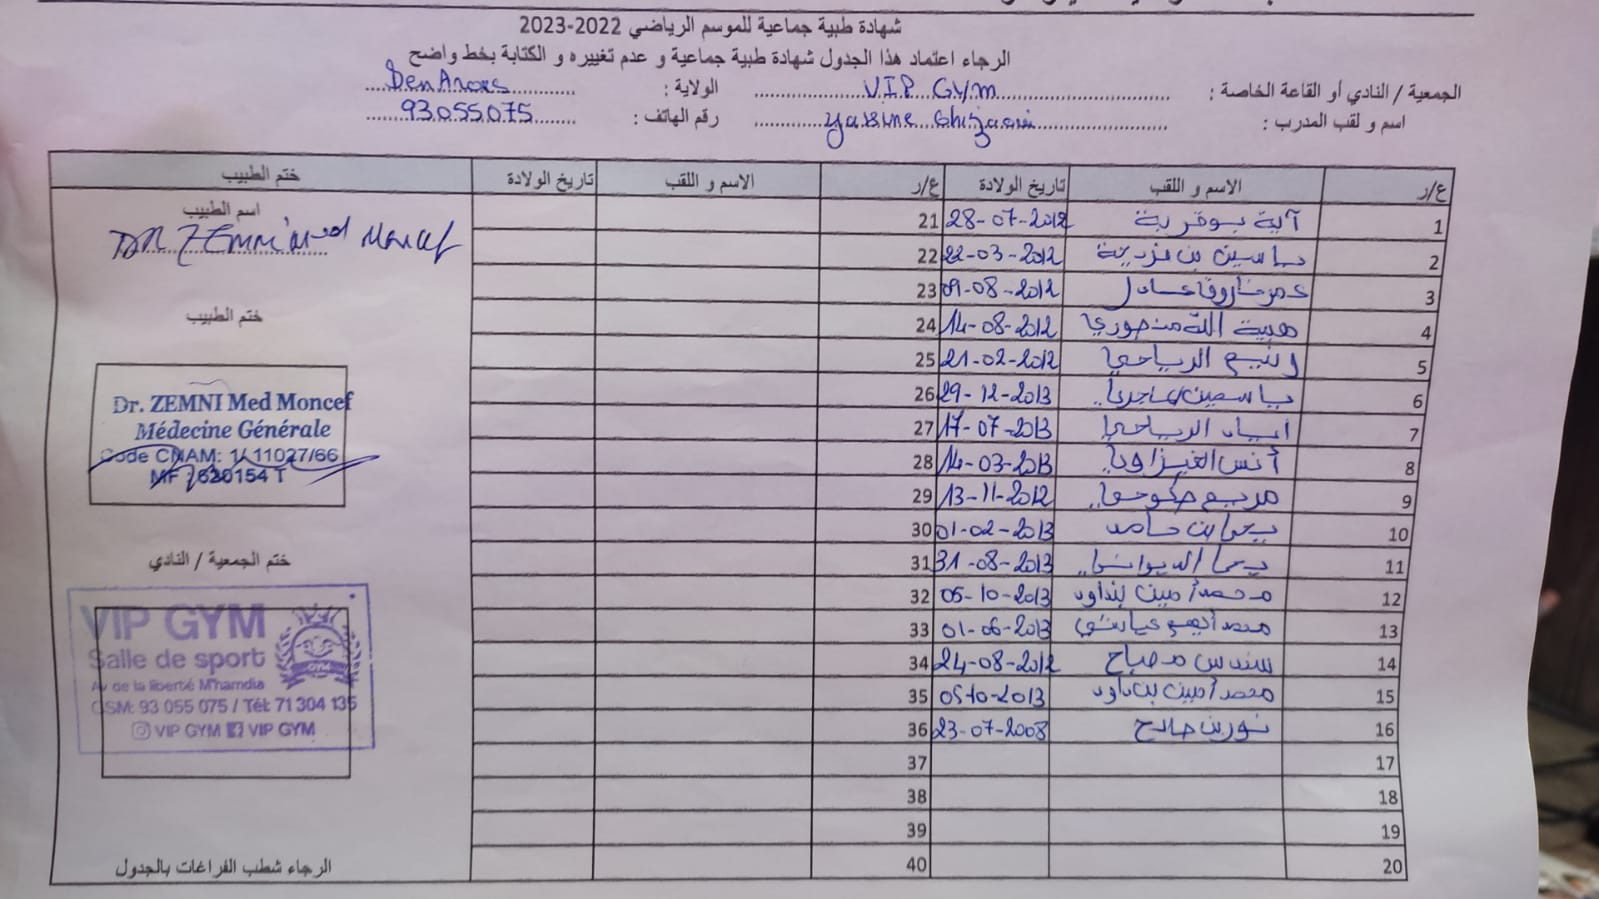 شهادة طبية جماعية للموسم الرياضي 2022-2023
الرجاء اعتماد هذا الجدول شهادة طبية جماعية و عدم تغييره و الكتابة بخط واضح
الجمعية / النادي أو القاعة الخاصة : V.I.P GYM الولاية : Ben Arous
اسم و لقب المدرب : Yassine Ghizaoui رقم الهاتف : 93055075
ع/ر الاسم و اللقب تاريخ الولادة ع/ر الاسم و اللقب تاريخ الولادة ختم الطبيب
1 آية بوقرية 28-07-2012 21
2 ياسين بن مزدية 22-03-2012 22
3 عمر فاروق عادل 09-08-2012 23
4 هبة الله منصوري 14-08-2012 24
5 الرياحي 21-02-2012 25
6 ياسمين 29-12-2013 26
7 اياد الرياحي 17-07-2013 27
8 أنس الغيزاوي 14-03-2013 28
9 مريم 13-11-2012 29
10 يحيا بن حامد 01-02-2013 30
11 يحيا 31-08-2013 31
12 محمد أمين بنداود 05-10-2013 32
13 محمد أيهم عياشي 01-06-2013 33
14 سندس مصباح 24-08-2012 34
15 محمد أمين بن داود 05-10-2013 35
16 نورين صالح 23-07-2008 36
17 37
18 38
19 39
20 40
اسم الطبيب
DR ZEMNI Moncef
ختم الطبيب
Dr. ZEMNI Med Moncef
Médecine Générale
Code CNAM: 1/ 11027/66
MF : 620154 T
ختم الجمعية / النادي
VIP GYM
Salle de sport
Av de la liberté M'hamdia
GSM: 93 055 075 / Tél: 71 304 135
VIP GYM VIP GYM
الرجاء شطب الفراغات بالجدول